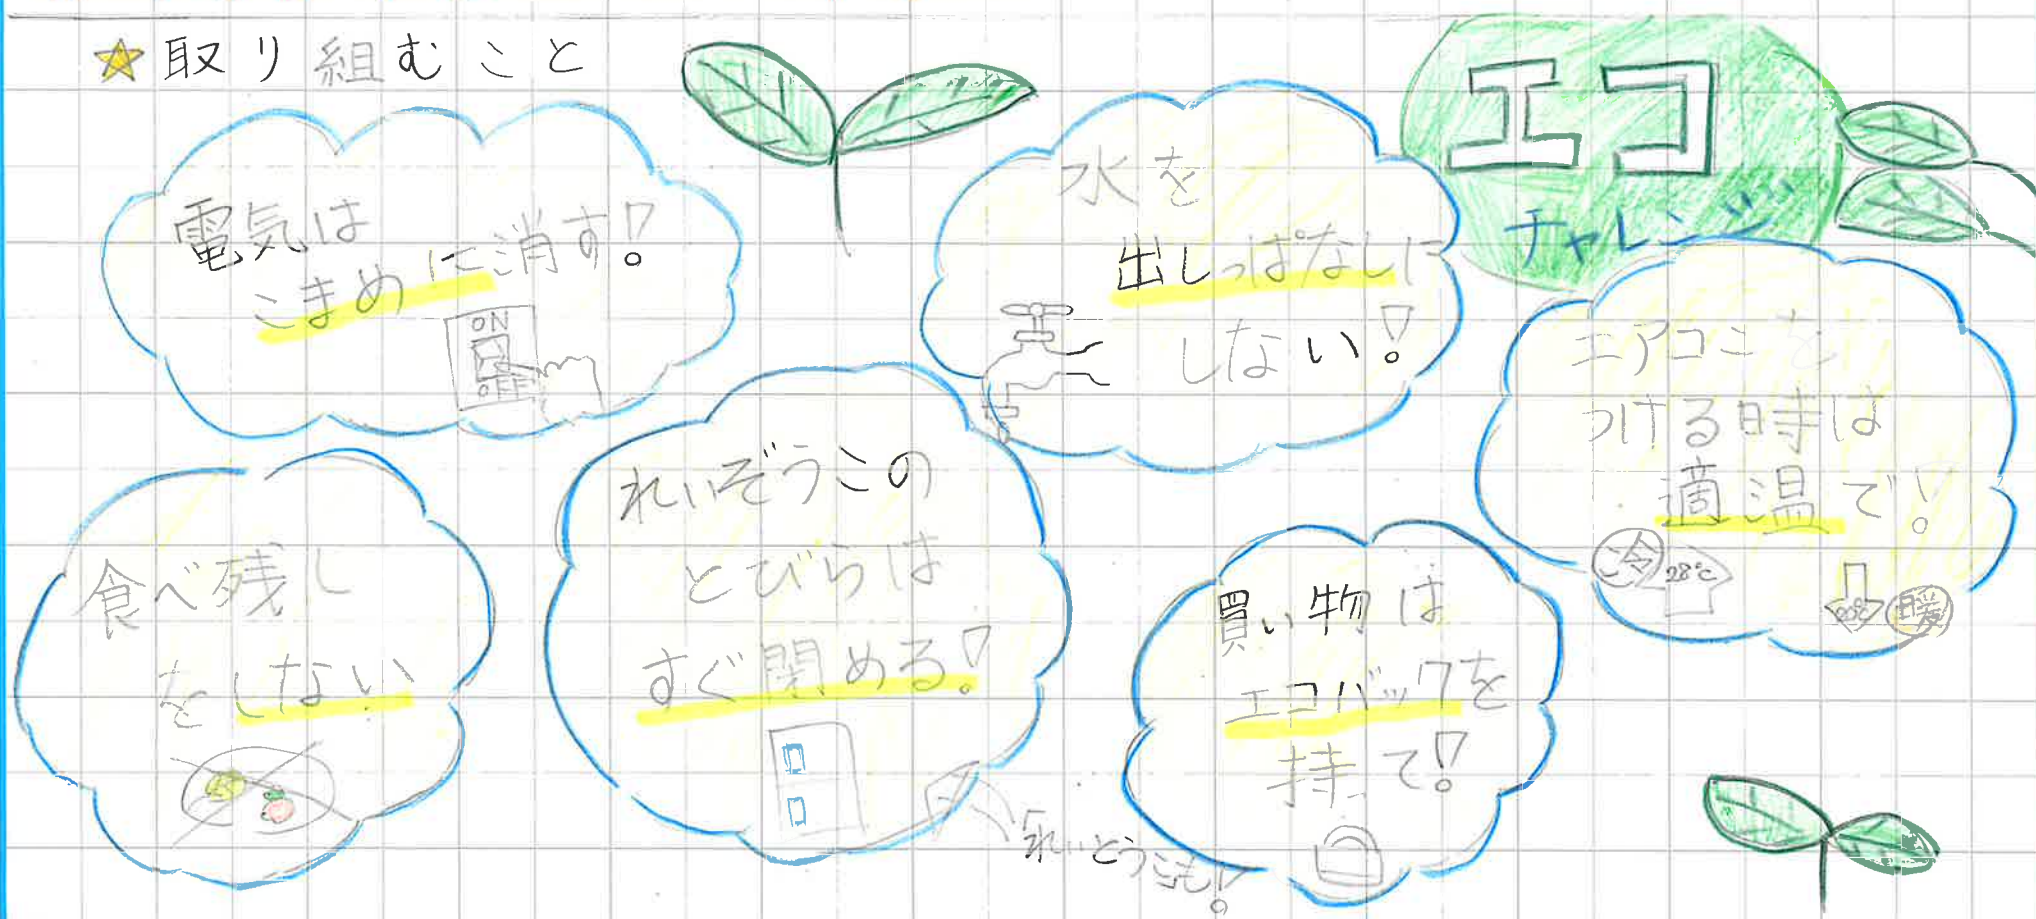 ★取り組むこと
エコ
チャレンジ
電気は
こまめに消す!
ON
OFF
水を
出しっぱなしに
しない!
エアコンを
つける時は
適温で!
冷
28℃
暖
食べ残し
をしない
れいぞうこの
とびらは
すぐ閉める!
れいとうこも!
買い物は
エコバックを
持て!